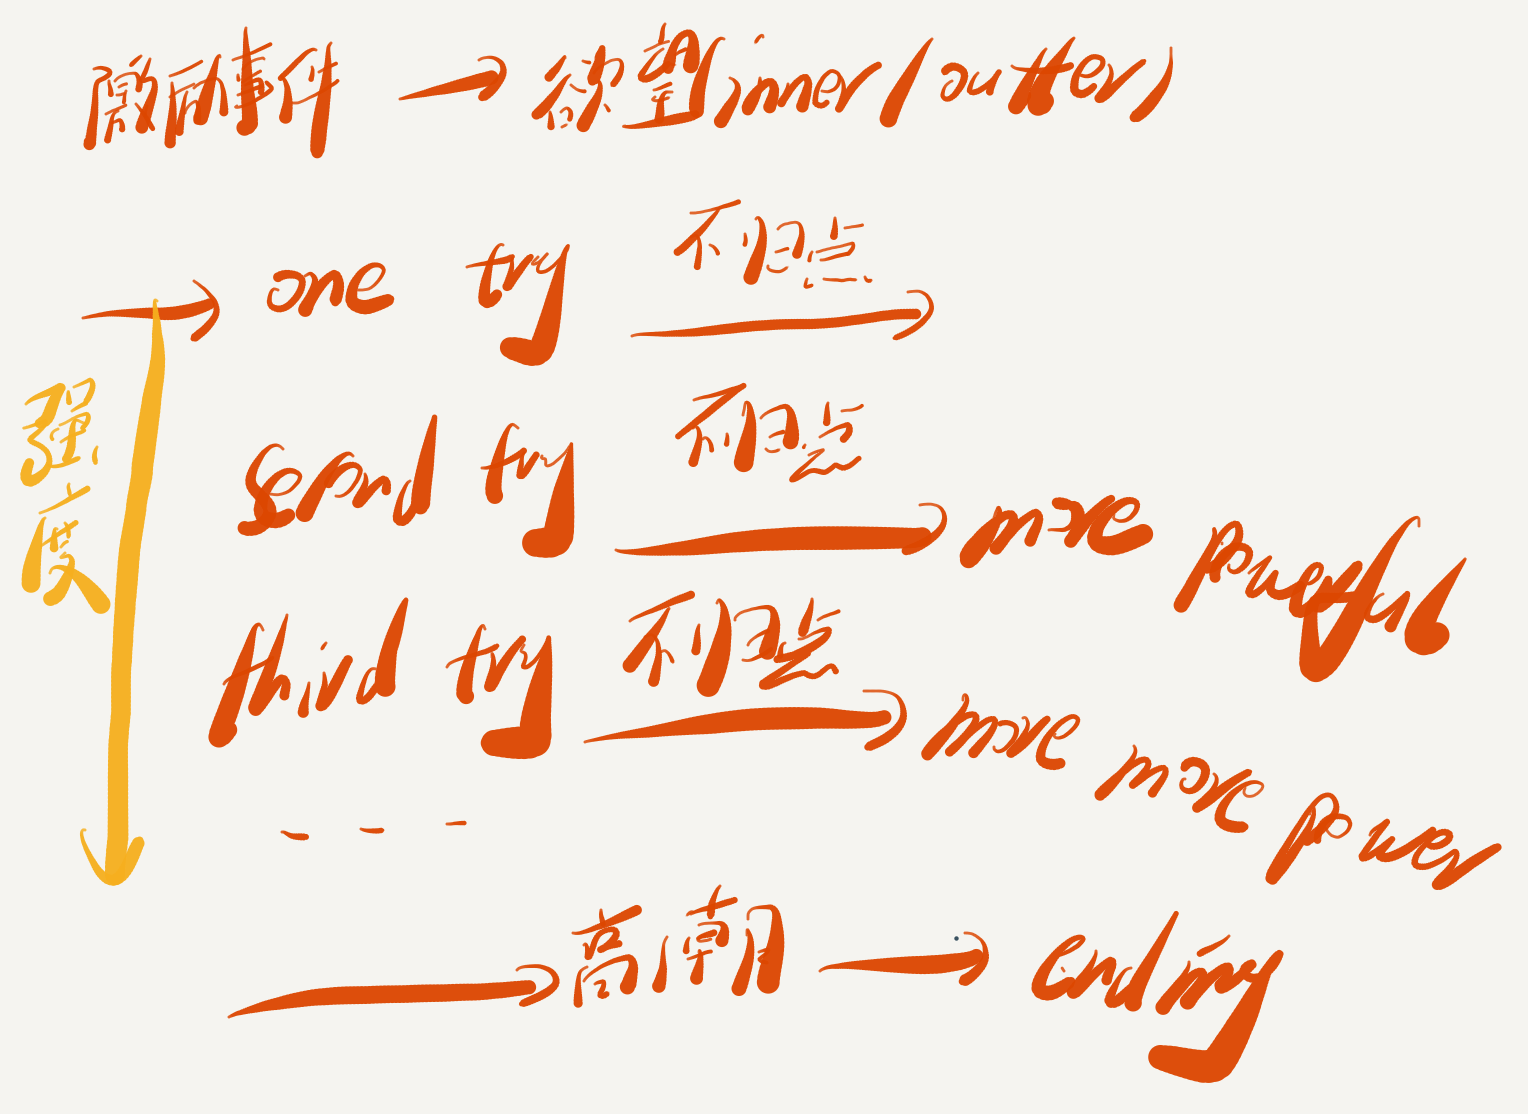 激励事件 → 欲望(inner/outter)
→ one try 不归点 →
second try 不归点 → more powerful
third try 不归点 → more more power
- - -
→ 高潮 → ending
强度